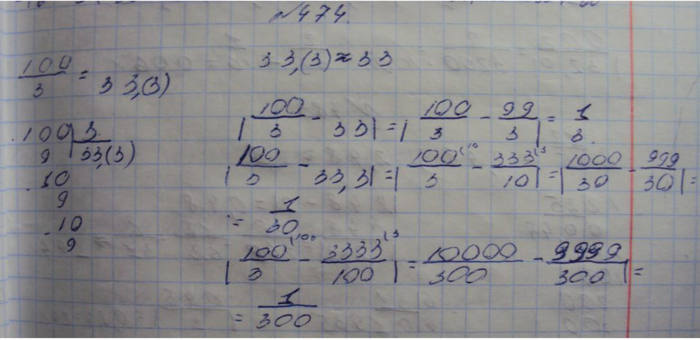 №474.
100/3 = 33,(3)
33,(3) ≈ 33
100 | 3
9 | 33,(3)
10
9
10
9
|100/3 - 33| = |100/3 - 99/3| = 1/3.
|100/3 - 33,3| = |100/3 (10 - 333/10 (3| = |1000/30 - 999/30| =
= 1/30
|100/3 (100 - 3333/100 (3| = 10000/300 - 9999/300| =
= 1/300